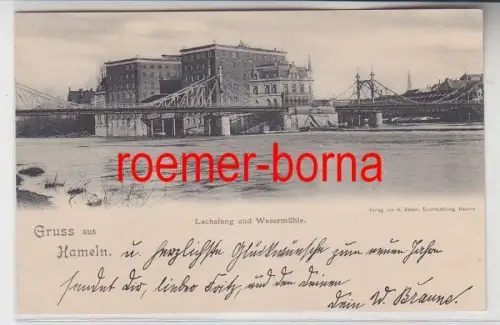 roemer-borna
Lachsfang und Wesermühle.
Verlag von H. Buchhandlung, Hameln
Gruss aus
Hameln.
u. herzlichste Glückwünsche zum neuen Jahre
sendet Dir, lieber Fritz, und den Deinen
Dein W. Braune.